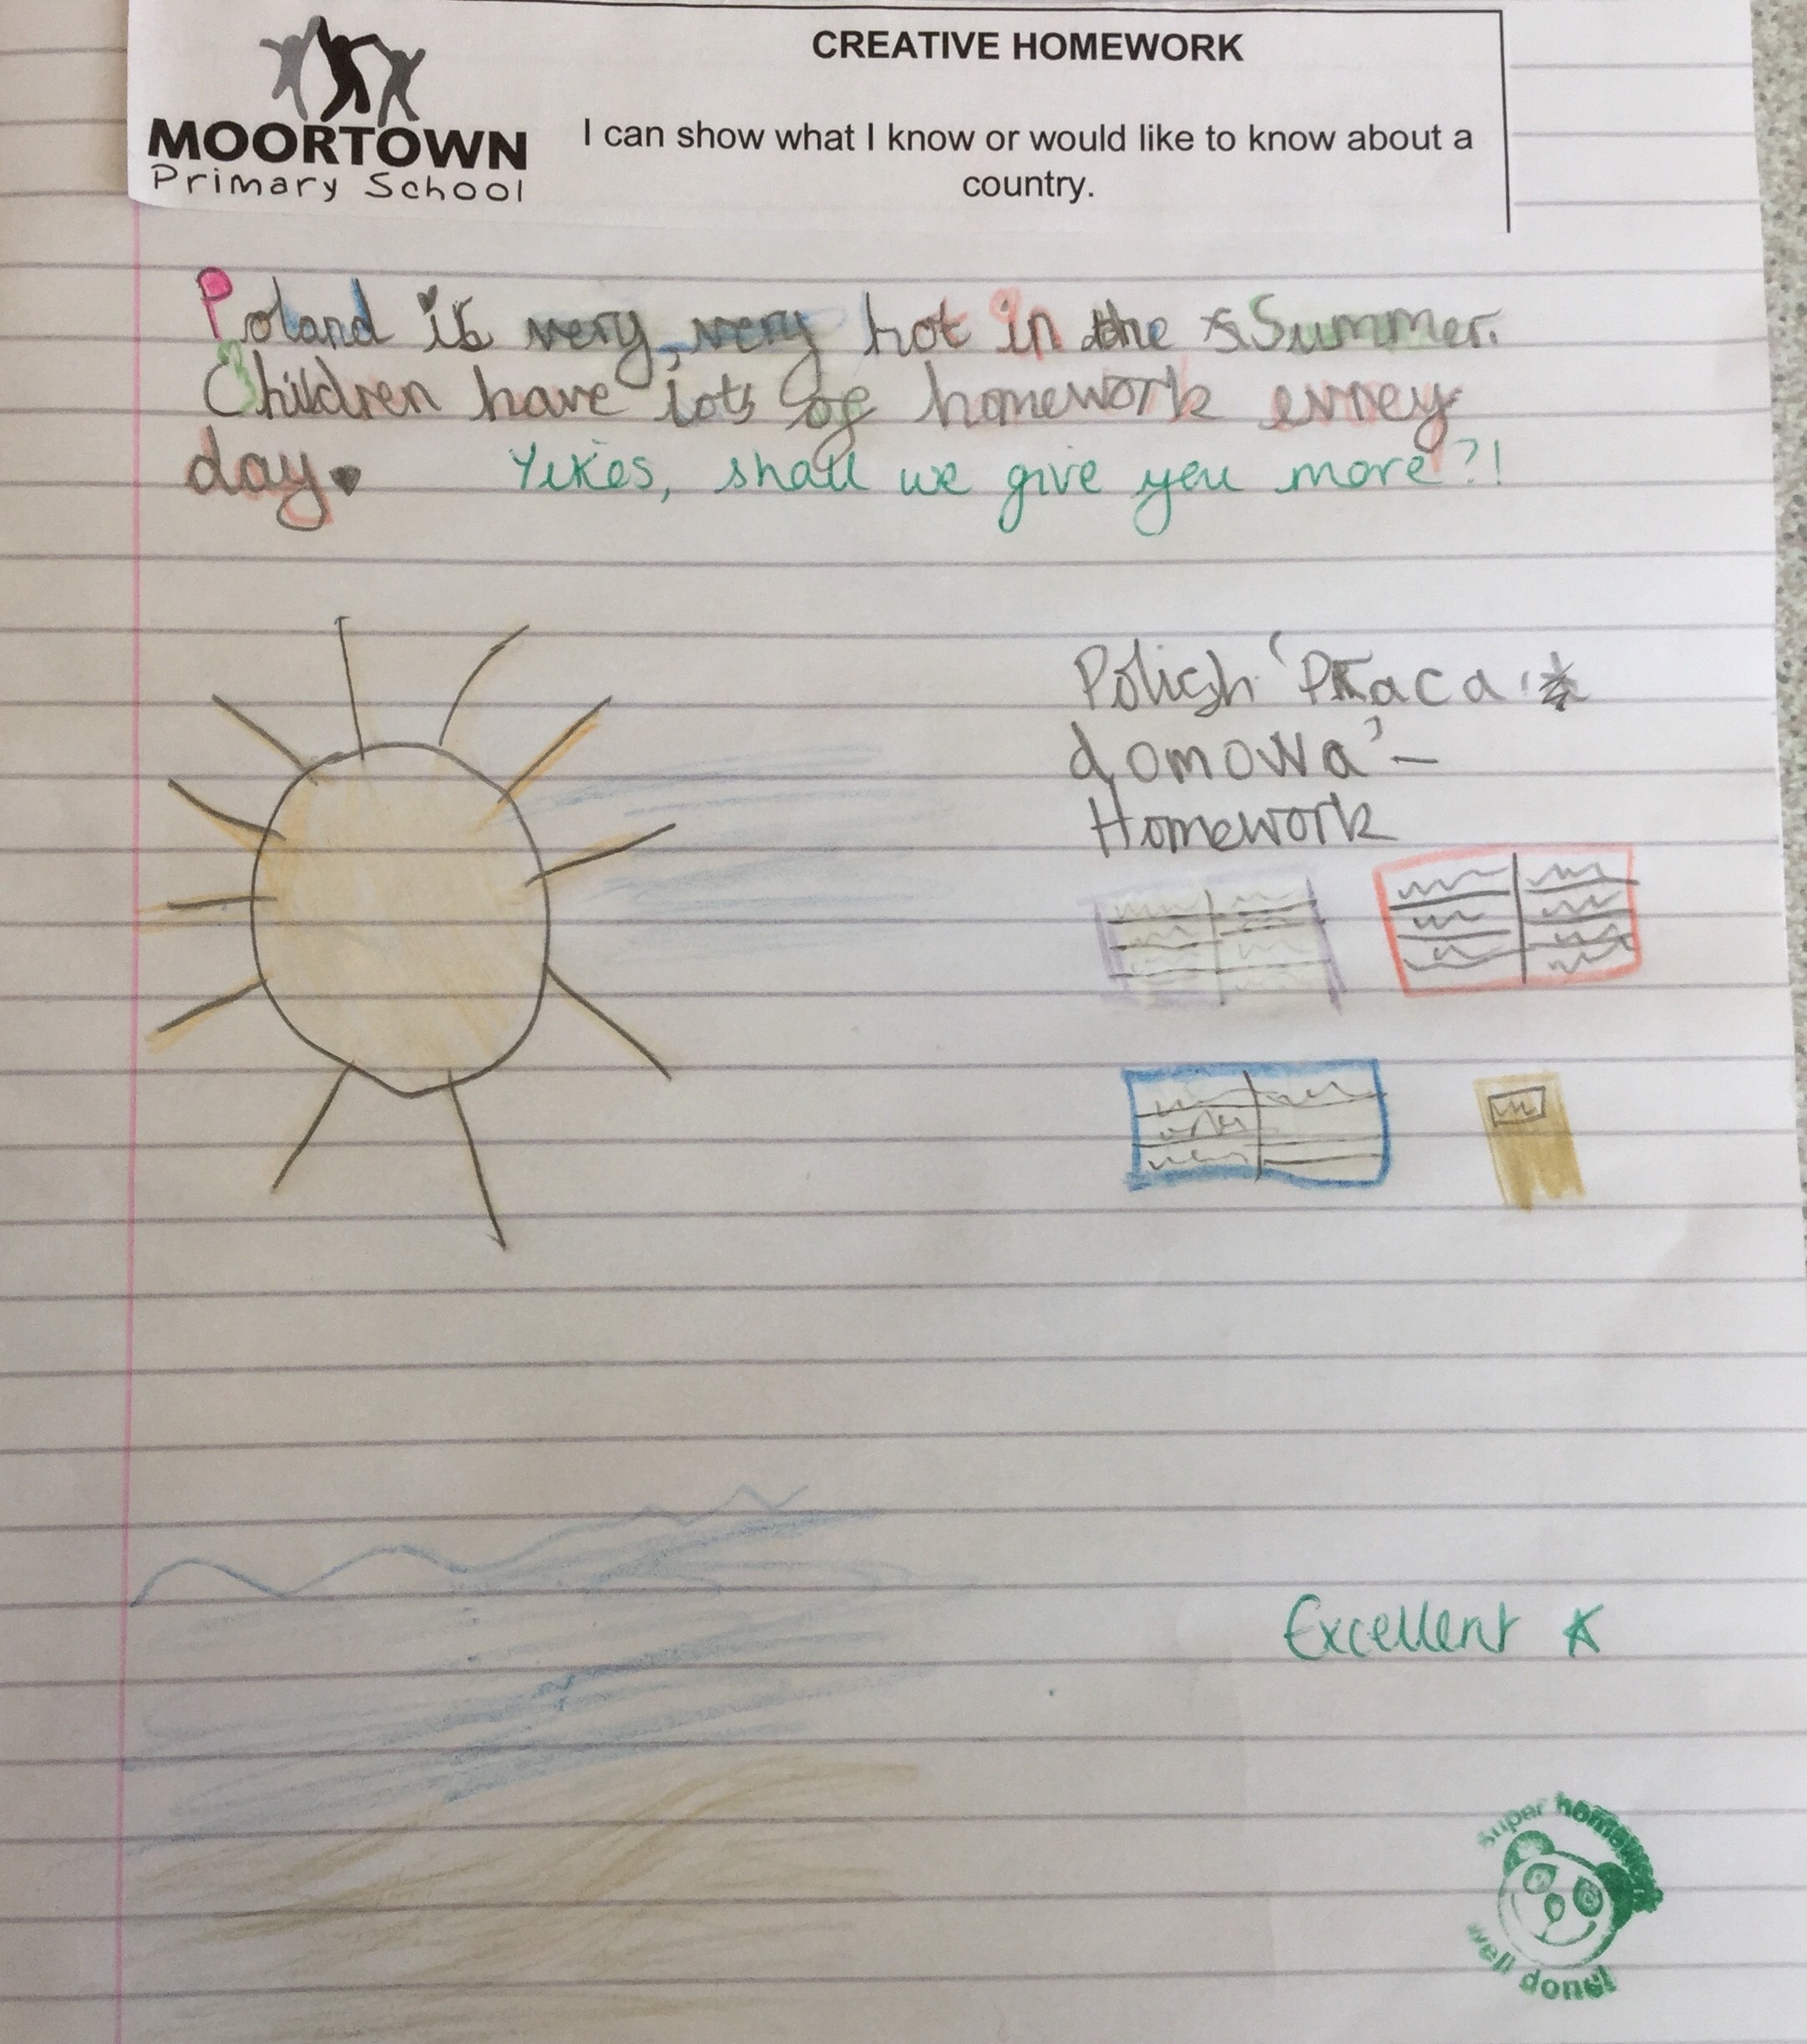 CREATIVE HOMEWORK
MOORTOWN
Primary School
I can show what I know or would like to know about a
country.
Poland is very, very hot in the Summer.
Children have lots of homework evrey
day.
Yikes, shall we give you more?!
Polish 'Praca
domowa' –
Homework
Excellent
Super homework
well done!